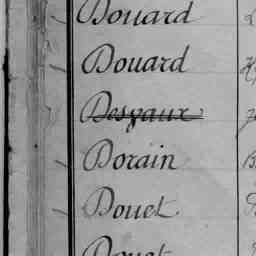 Douard
Douard
Despaux
Dorain
Douet
Douet